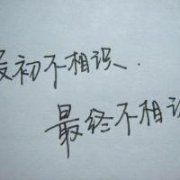 最初不相识.
最终不相识